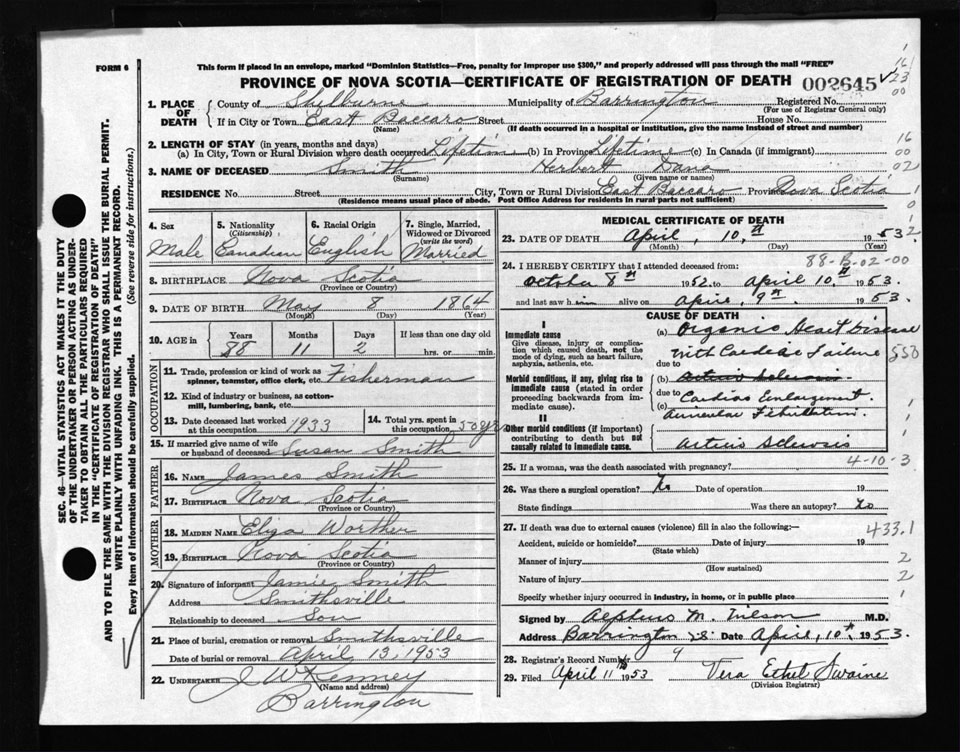 FORM 6
This form if placed in an envelope, marked "Dominion Statistics—Free, penalty for improper use $300," and properly addressed will pass through the mail "FREE"
PROVINCE OF NOVA SCOTIA—CERTIFICATE OF REGISTRATION OF DEATH 002645
1. PLACE OF DEATH County of Shelburne Municipality of Barrington Registered No.
(For use of Registrar General only)
If in City or Town East Baccaro Street House No.
(Name) (If death occurred in a hospital or institution, give the name instead of street and number)
2. LENGTH OF STAY (in years, months and days)
(a) In City, Town or Rural Division where death occurred Lifetime (b) In Province Lifetime (c) In Canada (if immigrant)
3. NAME OF DECEASED Smith Herbert Dana
(Surname) (Given name or names)
RESIDENCE No. Street City, Town or Rural Division East Baccaro Province Nova Scotia
(Residence means usual place of abode. Post Office Address for residents in rural parts not sufficient)
4. Sex Male
5. Nationality (Citizenship) Canadian
6. Racial Origin English
7. Single, Married, Widowed or Divorced (write the word) Married
8. BIRTHPLACE Nova Scotia
(Province or Country)
9. DATE OF BIRTH May 8 1864
(Month) (Day) (Year)
10. AGE in Years Months Days If less than one day old
88 11 2 hrs. or min.
OCCUPATION
11. Trade, profession or kind of work as spinner, teamster, office clerk, etc. Fisherman
12. Kind of industry or business, as cotton-mill, lumbering, bank, etc.
13. Date deceased last worked at this occupation 1933
14. Total yrs. spent in this occupation 50 yrs
15. If married give name of wife or husband of deceased Susan Smith
FATHER
16. NAME James Smith
17. BIRTHPLACE Nova Scotia
(Province or Country)
MOTHER
18. MAIDEN NAME Eliza
19. BIRTHPLACE Nova Scotia
(Province or Country)
20. Signature of informant Jamie Smith
Address Smithsville
Relationship to deceased Son
21. Place of burial, cremation or removal Smithsville
Date of burial or removal April 13, 1953
22. UNDERTAKER J W Kenney
(Name and address)
Barrington
MEDICAL CERTIFICATE OF DEATH
23. DATE OF DEATH April, 10, th 1953
(Month) (Day) (Year)
88-B-02-00
24. I HEREBY CERTIFY that I attended deceased from:
October 8th 1952 to April 10th 1953
and last saw him alive on April, 9th 1953.
CAUSE OF DEATH
I
Immediate cause
Give disease, injury or complication which caused death, not the mode of dying, such as heart failure, asphyxia, asthenia, etc.
(a) Organic Heart Disease
with Cardiac Failure
due to
Morbid conditions, if any, giving rise to immediate cause (stated in order proceeding backwards from immediate cause).
(b) Arterio Sclerosis
due to
(c) Cardiac Enlargement.
Auricular Fibrillation.
II
Other morbid conditions (if important) contributing to death but not causally related to immediate cause.
Arterio Sclerosis
25. If a woman, was the death associated with pregnancy? 4-10-3
26. Was there a surgical operation? No Date of operation 19
State findings Was there an autopsy? No
27. If death was due to external causes (violence) fill in also the following:— 433.1
Accident, suicide or homicide? Date of injury 19
(State which)
Manner of injury 2
(How sustained)
Nature of injury 2
Specify whether injury occurred in industry, in home, or in public place
Signed by Alpheus M. Wilson M.D.
Address Barrington N.S. Date April, 10th, 1953.
28. Registrar's Record Number 9
29. Filed April 11th 1953 Vera Ethel Swaine
(Division Registrar)
SEC. 46—VITAL STATISTICS ACT MAKES IT THE DUTY
OF THE UNDERTAKER OR PERSON ACTING AS UNDERTAKER TO OBTAIN ALL THE PARTICULARS REQUIRED
IN THE "CERTIFICATE OF REGISTRATION OF DEATH"
AND TO FILE THE SAME WITH THE DIVISION REGISTRAR WHO SHALL ISSUE THE BURIAL PERMIT.
WRITE PLAINLY WITH UNFADING INK. THIS IS A PERMANENT RECORD.
Every item of information should be carefully supplied. (See reverse side for instructions.)